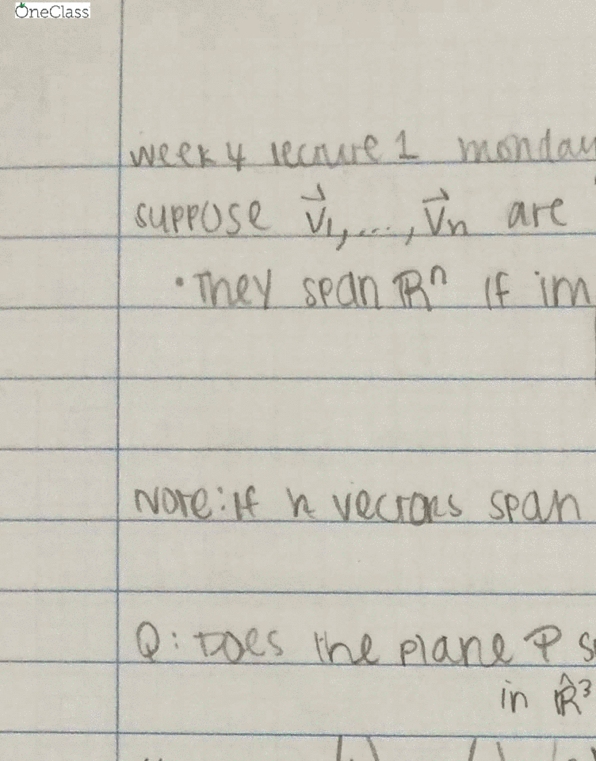 OneClass
week 4 lecture 1 monday
suppose v⃗₁,...,v⃗ₙ are
• They span ℝⁿ if im
Note: if n vectors span
Q: Does the plane P
in ℝ³